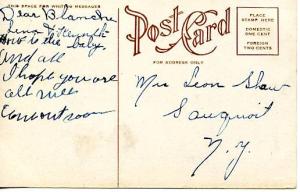 THIS SPACE FOR WRITING MESSAGES
Post Card
PLACE
STAMP HERE
DOMESTIC
ONE CENT
FOREIGN
TWO CENTS
FOR ADDRESS ONLY
Dear Blanche
to the baby
And all
I hope you are
all well
Come out soon
Mrs Leon Shaw
Sauquoit
N.Y.